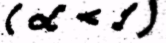 (α < 1)